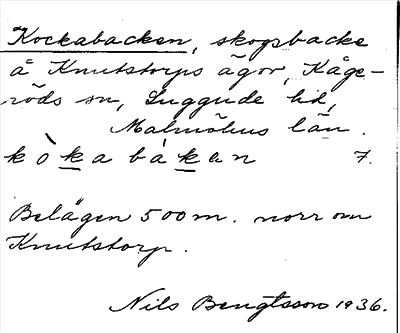 Kockabacken, skogsbacke
å Knutstorps ägor, Kåge-
röds sn, Luggude hd,
Malmöhus län.
kòkabàkan 7.
Belägen 500 m. norr om
Knutstorp.
Nils Bengtsson 1936.